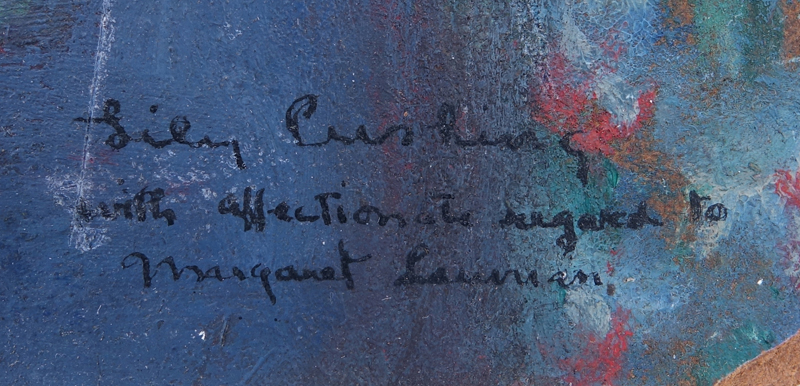 Lily Cushing
with affectionate regard to
Margaret